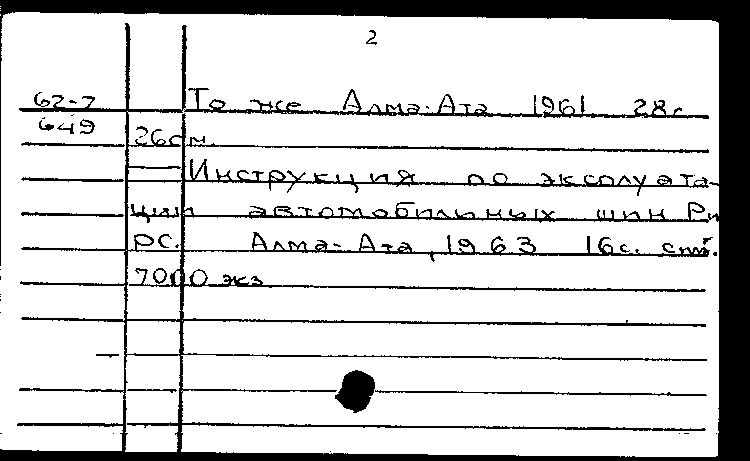 2
62-7 То же Алма-Ата 1961 28с
649 26см.
— Инструкция по эксплуата-
ции автомобильных шин Ри
РС. Алма-Ата, 1963 16с.
7000 экз